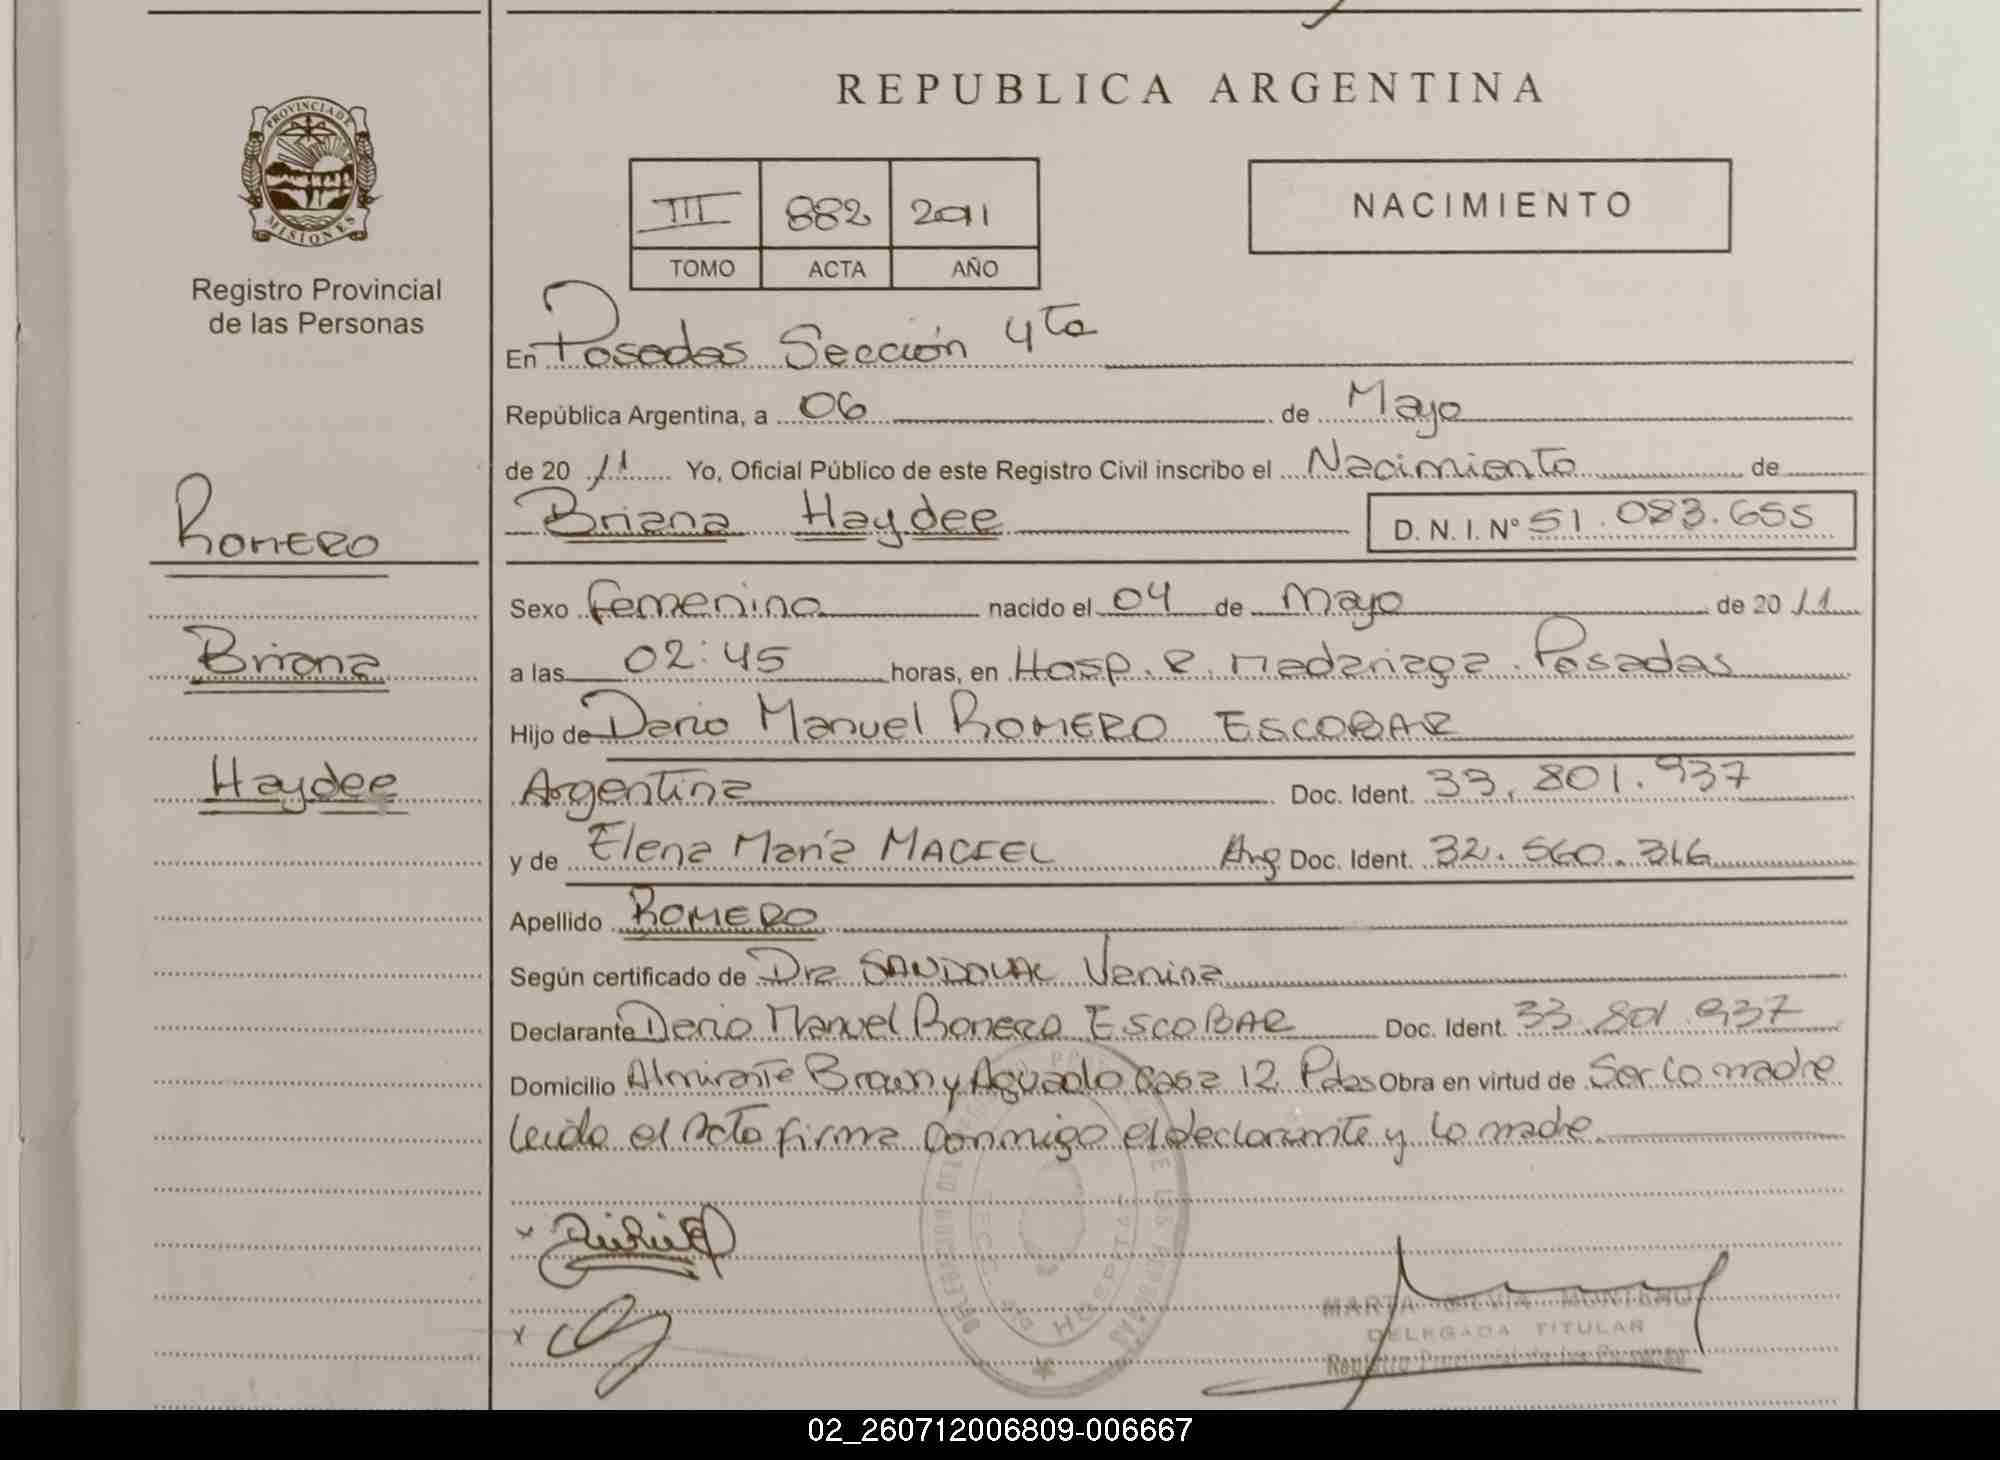 REPUBLICA ARGENTINA
PROVINCIA DE
MISIONES
Registro Provincial
de las Personas
III 882 2011
TOMO ACTA AÑO
NACIMIENTO
En Posadas Sección 4ta
República Argentina, a 06 de Mayo
de 20 11 Yo, Oficial Público de este Registro Civil inscribo el Nacimiento de
Briana Haydee D. N. I. Nº 51.083.655
ROMERO
Briana
Haydee
Sexo femenino nacido el 04 de Mayo de 20 11
a las 02:45 horas, en Hosp. R. Madariaga. Posadas
Hijo de Dario Manuel ROMERO ESCOBAR
Argentina Doc. Ident. 33.801.937
y de Elena María MACIEL Arg Doc. Ident. 32.560.316
Apellido ROMERO
Según certificado de Dra SANDOVAL Vanina
Declarante Dario Manuel Romero ESCOBAR Doc. Ident. 33.801.937
Domicilio Almirante Brown y Aguado casa 12 Pdas Obra en virtud de Ser la madre
leída el acta firma conmigo el declarante y la madre
x
x
MARTA SILVIA MONTERO
DELEGADA TITULAR
Registro Provincial de las Personas
02_260712006809-006667